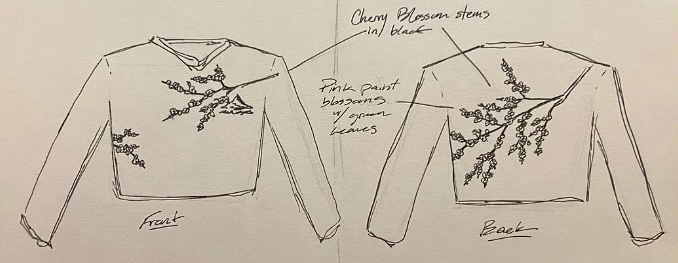 Cherry Blossom stems
in/ black
Pink paint
blossoms
w/ green
leaves
Front
Back